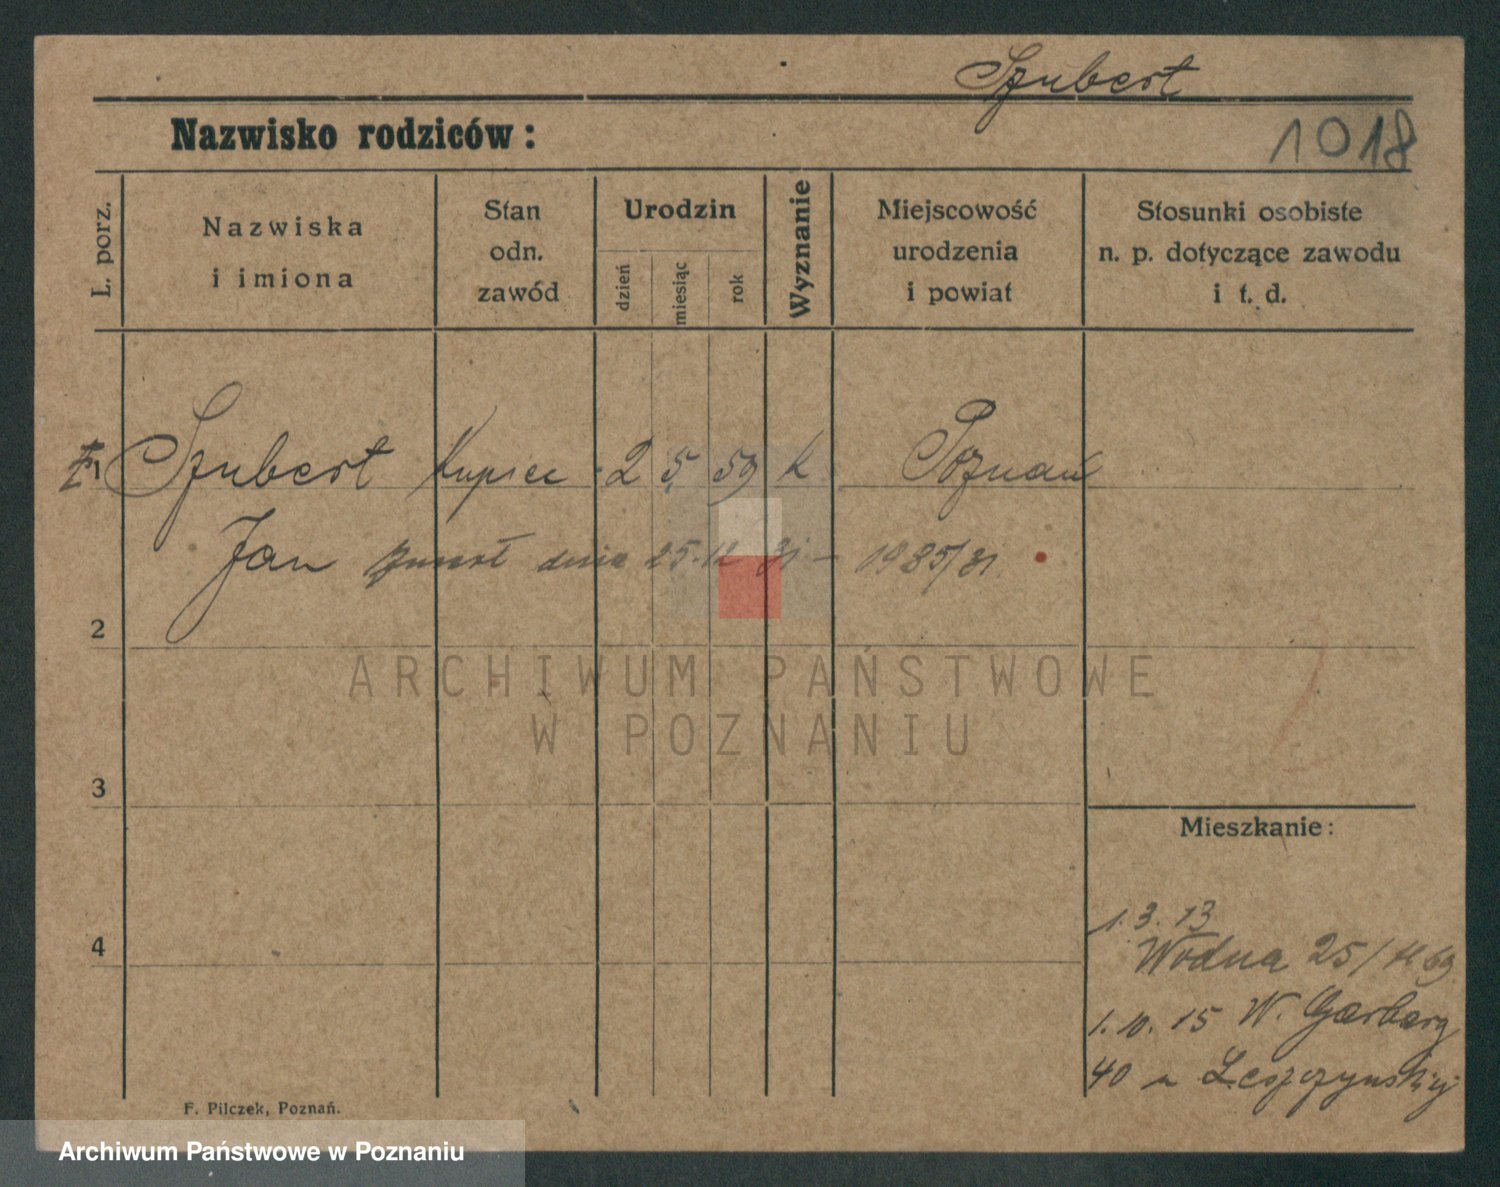 Szubert
Nazwisko rodziców:
1018
L. porz.
Nazwiska
i imiona
Stan
odn.
zawód
Urodzin
dzień
miesiąc
rok
Wyznanie
Miejscowość
urodzenia
i powiat
Stosunki osobiste
n. p. dotyczące zawodu
i t. d.
1 Szubert Kupiec 2 5 59 k Poznań
Jan zmarł dnia 25.12 31 - 1985/31
2
ARCHIWUM PAŃSTWOWE
W POZNANIU
3
Mieszkanie:
4
1.3.13
Wodna 25/
1.10.15 W. Garbary
40 Leszczynskiej
F. Pilczek, Poznań.
Archiwum Państwowe w Poznaniu